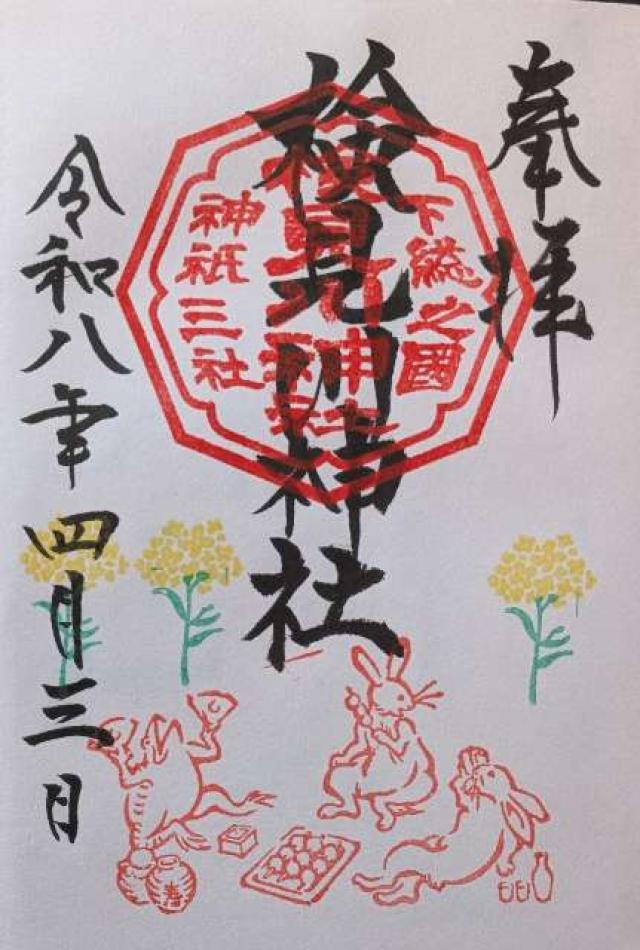 奉拝
検見川神社
下総之國
検見川神社
神祇三社
令和八年四月三日
寿